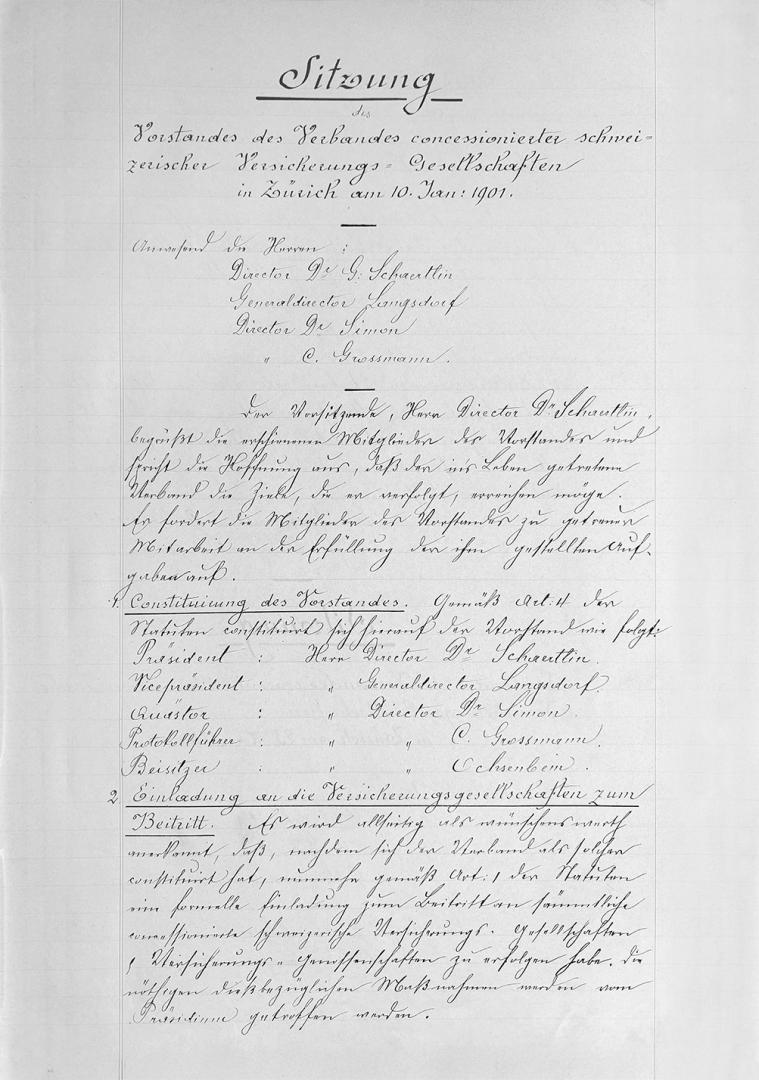 Sitzung
des
Vorstandes des Verbandes concessionierter schwei=
zerischer Versicherungs=Gesellschaften
in Zürich am 10. Jan: 1901.
Anwesend die Herren :
Director Dr G: Schaertlin
Generaldirector Langsdorf
Director Dr Simon
" C. Grossmann.
Der Vorsitzende, Herr Director Dr Schaertlin,
begrüßt die erschienenen Mitglieder des Vorstandes und
spricht die Hoffnung aus, daß der ins Leben getretene
Verband die Ziele, die er verfolgt, erreichen möge.
Er fordert die Mitglieder des Vorstandes zu getreuer
Mitarbeit an der Erfüllung der ihm gestellten Auf-
gaben auf.
1. Constituirung des Vorstandes. Gemäß Art: 4 der
Statuten constituirt sich hierauf der Vorstand wie folgt:
Präsident : Herr Director Dr Schaertlin.
Vicepräsident : " Generaldirector Langsdorf.
Quästor : " Director Dr Simon.
Protokollführer : " " C. Grossmann.
Beisitzer : " " Ochsenbein.
2 Einladung an die Versicherungsgesellschaften zum
Beitritt. Es wird allseitig als wünschenswerth
anerkannt, daß, nachdem sich der Verband als solcher
constituirt hat, nunmehr gemäß Art: 1 der Statuten
eine formelle Einladung zum Beitritt an sämmtliche
concessionierte schweizerische Versicherungs-Gesellschaften
& Versicherungs=Genossenschaften zu erfolgen habe. Die
nöthigen dießbezüglichen Maßnahmen werden vom
Präsidium getroffen werden.